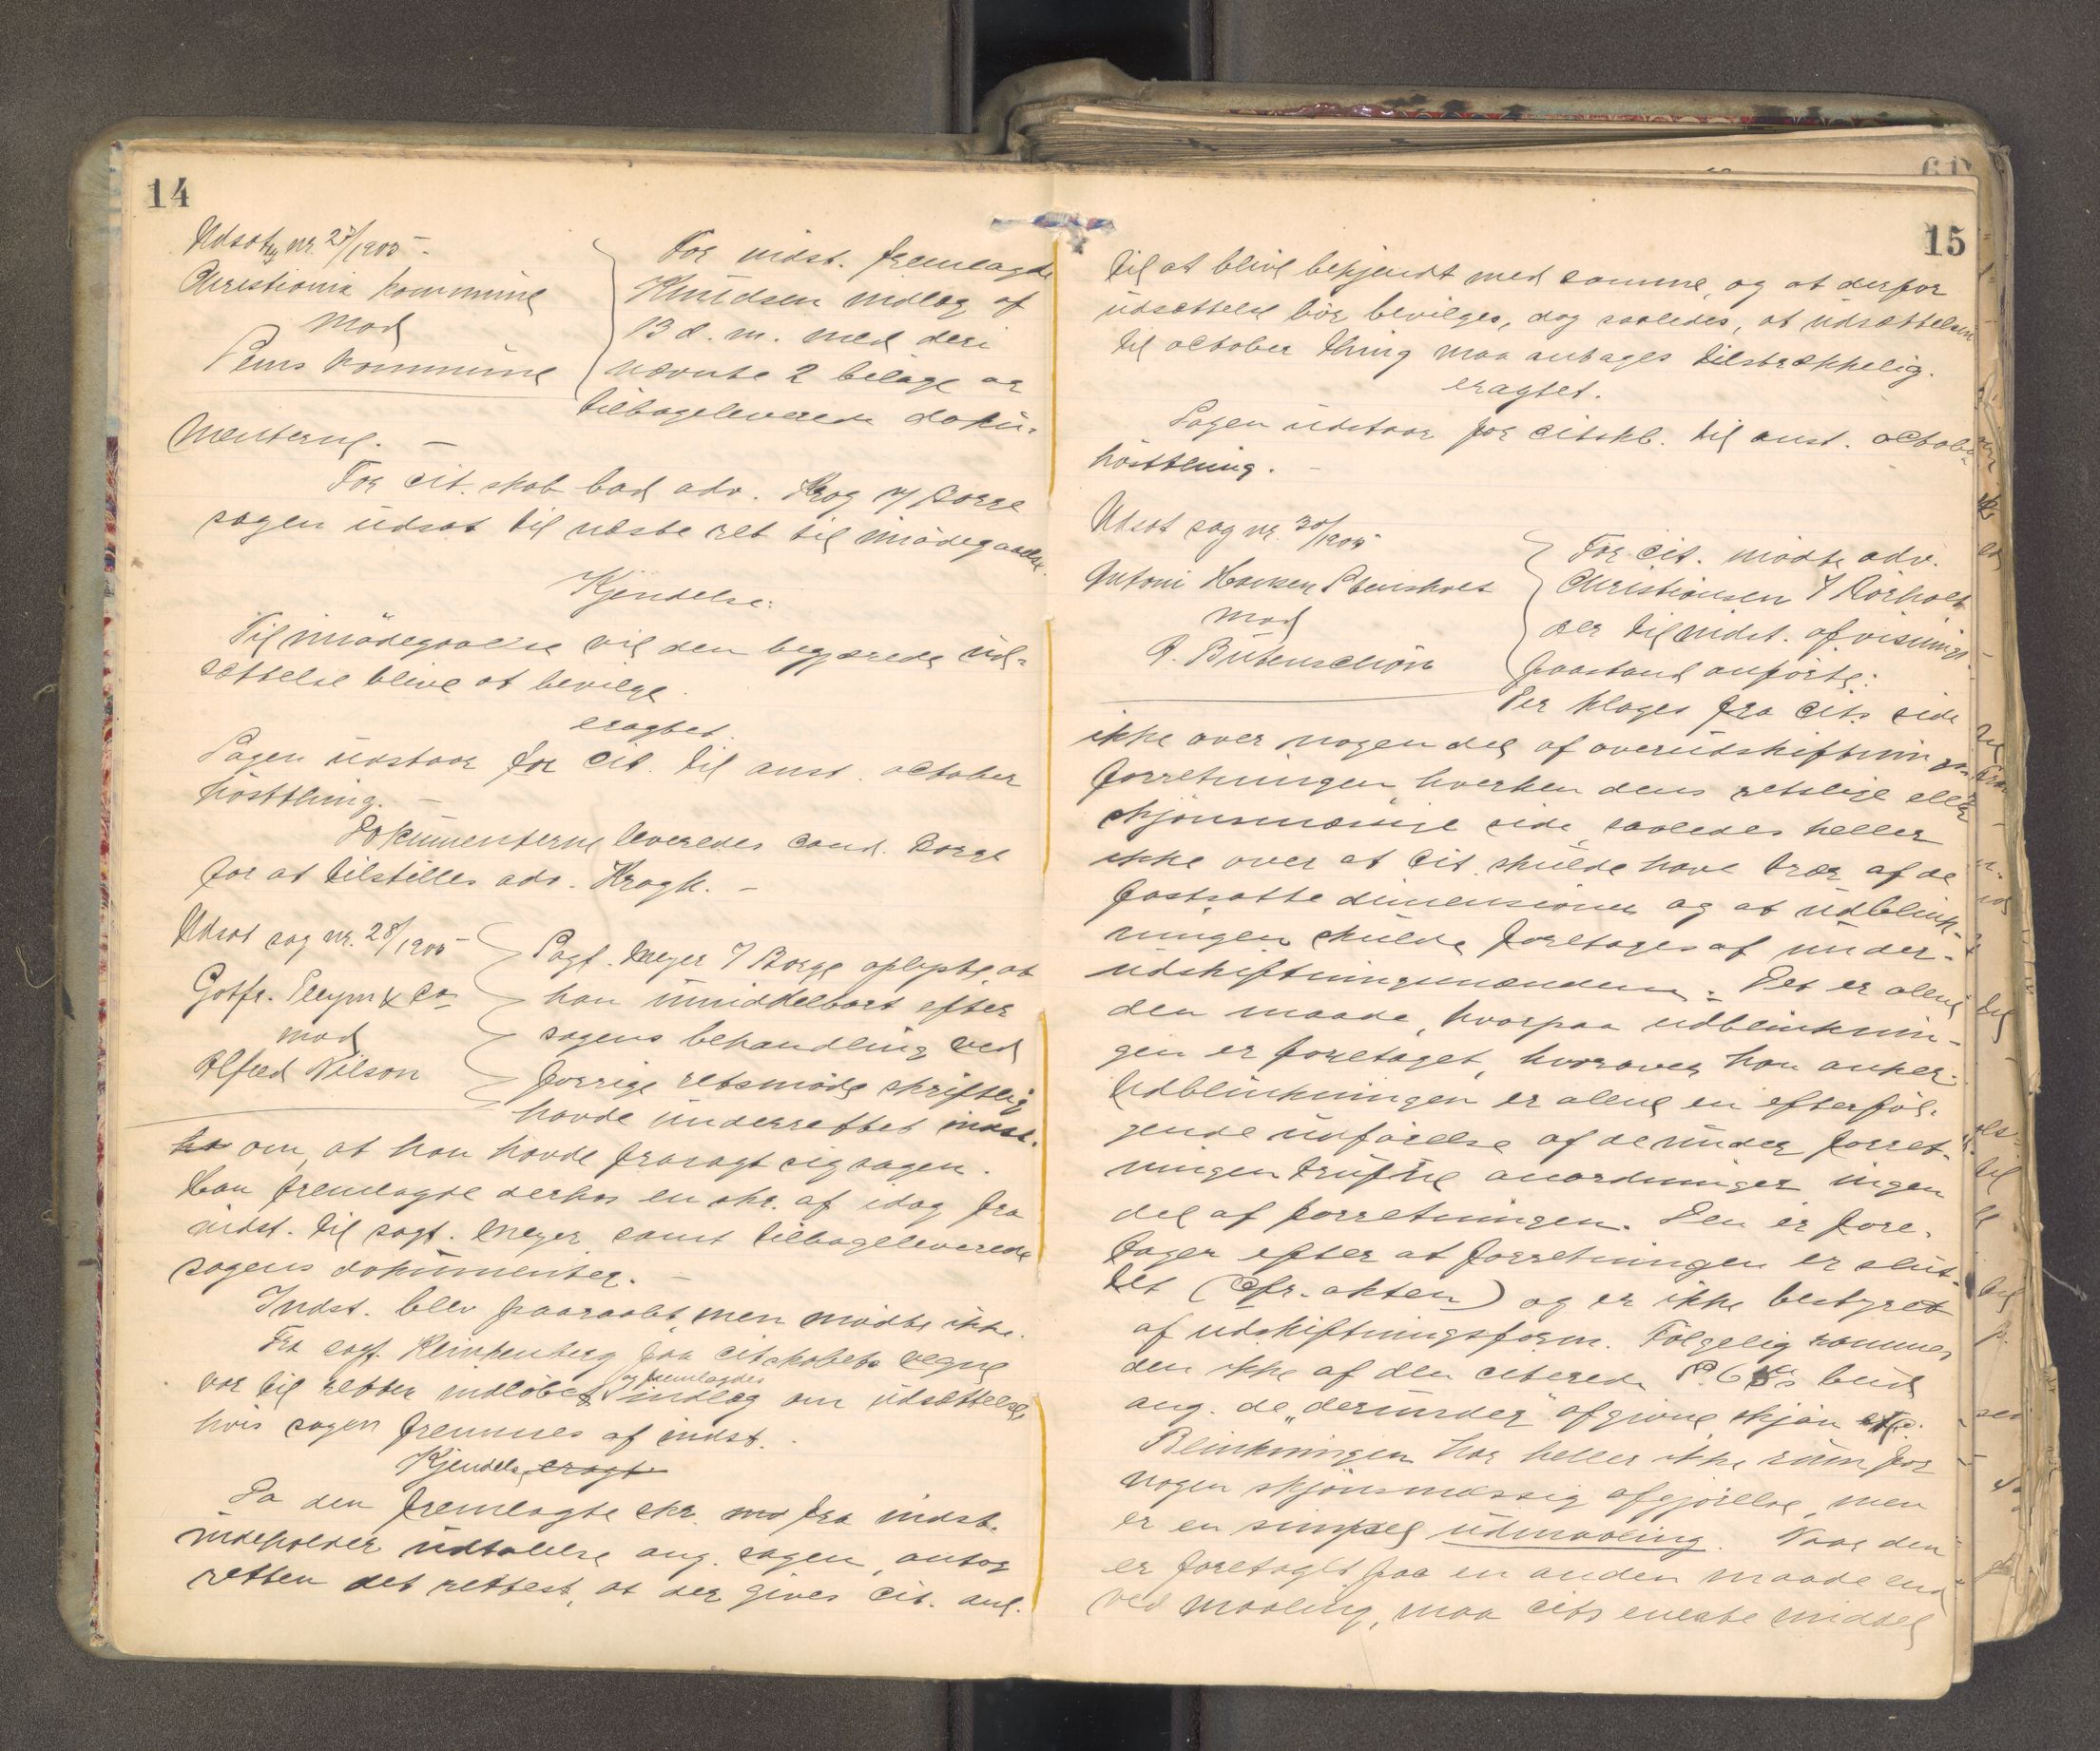 14
Udsat sag nr. 27/1905
Christiania kommune
mod
Lens kommune
For indst. fremlagde
Knudsen indlæg af
13 d. m. med deri
nævnte 2 bilage og
tilbageleverede doku-
menterne. –
For cit.skab bad adv. Krog v/ Borge
sagen udsat til næste ret til imødegaaelse.
Kjendelse:
Til imødegaaelse vil den begjærede ud-
sættelse blive at bevilge.
eragtet.
Sagen udstaar for cit. til anst. october
høstthing. –
Dokumenterne leveredes cand. Borge
for at tilstilles adv. Krogh. –
Udsat sag nr. 28/1905
Gotfr. & Co
mod
Alfred Nilson
Sagf. Meyer v/ Borge oplyste, at
han umiddelbart efter
sagens behandling ved
forrige retsmøde skriftlig
havde underrettet indst.
om, at han havde frasagt sig sagen.
Han fremlagde derhos en skr. af idag fra
indst. til sagf. Meyer samt tilbageleverede
sagens dokumenter. –
Indst. blev paaraabt, men mødte ikke.
Fra sagf. Klinkenberg paa citskabets vegne
var til retten indløbet og fremlagdes indlæg om udsættelse,
hvis sagen fremmes af indst.
Kjendelse eragt
Da den fremlagte skr. fra indst.
indeholder udtalelse ang. sagen, antog
retten det rettest, at der gives cit. anl.
15
til at blive bekjendt med samme, og at derfor
udsættelse bør bevilges, dog saaledes, at udsættelsen
til october thing maa antages tilstrækkelig.
eragtet.
Sagen udstaar for citskb. til anst. october
høstthing. –
Udsat sag nr. 30/1905
Antoni Hansen Stenshol
mod
A. Butenschøn
For cit. mødte adv.
Christiansen v/ Rørholt
der til indst. afvisnings-
paastand anførte:
Der klages fra cits side
ikke over nogen del af overudskiftnings
forretningen, hverken dens retslige eller
skjønsmæssige side, saaledes heller
ikke over at cit. skulde have trær af de
fastsatte dimensioner og at udblink-
ningen skulde foretages af under-
udskiftningsmændene. Det er alene
den maade, hvorpaa udblinknin-
gen er foretaget, hvorover han anker.
Udblinkningen er alene en efterføl-
gende udførelse af de under forret-
ningen trufne anordninger ingen
del af forretningen. Den er fore-
tager efter at forretningen er slut-
tet (Cfr. akten) og er ikke bestyret
af udskiftningsform. Følgelig rammes
den ikke af den citerede § 65s bud
ang. de "derunder" afgivne skjøn etc.
Blinkningen har heller ikke rum for
nogen skjønsmæssig afgjørelse, men
er en simpel udmaaling. Naar den
er foretaget paa en anden maade end
ved maaling, maa cits eneste middel